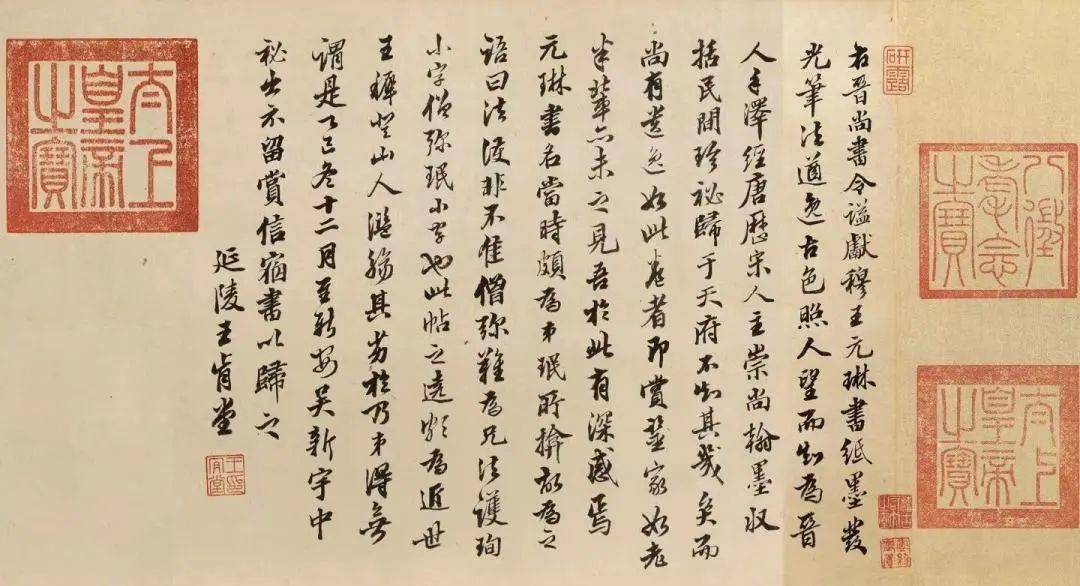 八徵耄念之寶
太上皇帝之寶
研露
右晉尚書令謚獻穆王元琳書紙墨發
光筆法遒逸古色照人望而知為晉
人手澤經唐歷宋人主崇尚翰墨收
括民間珍秘歸于天府不知其幾矣而
尚有遺逸如此卷者即賞鑒家如老
米輩亦未之見吾於此有深感焉
元琳書名當時頗為弟珉所揜故為之
語曰法護非不佳僧弥難為兄法護珣
小字僧弥珉小字也此帖之遠為近世
王穉登山人濫觴其劣於乃弟得無
謂是乙巳冬十二月至新安吳新宇中
秘出示留賞信宿書以歸之
延陵王肯堂
太上皇帝之寶